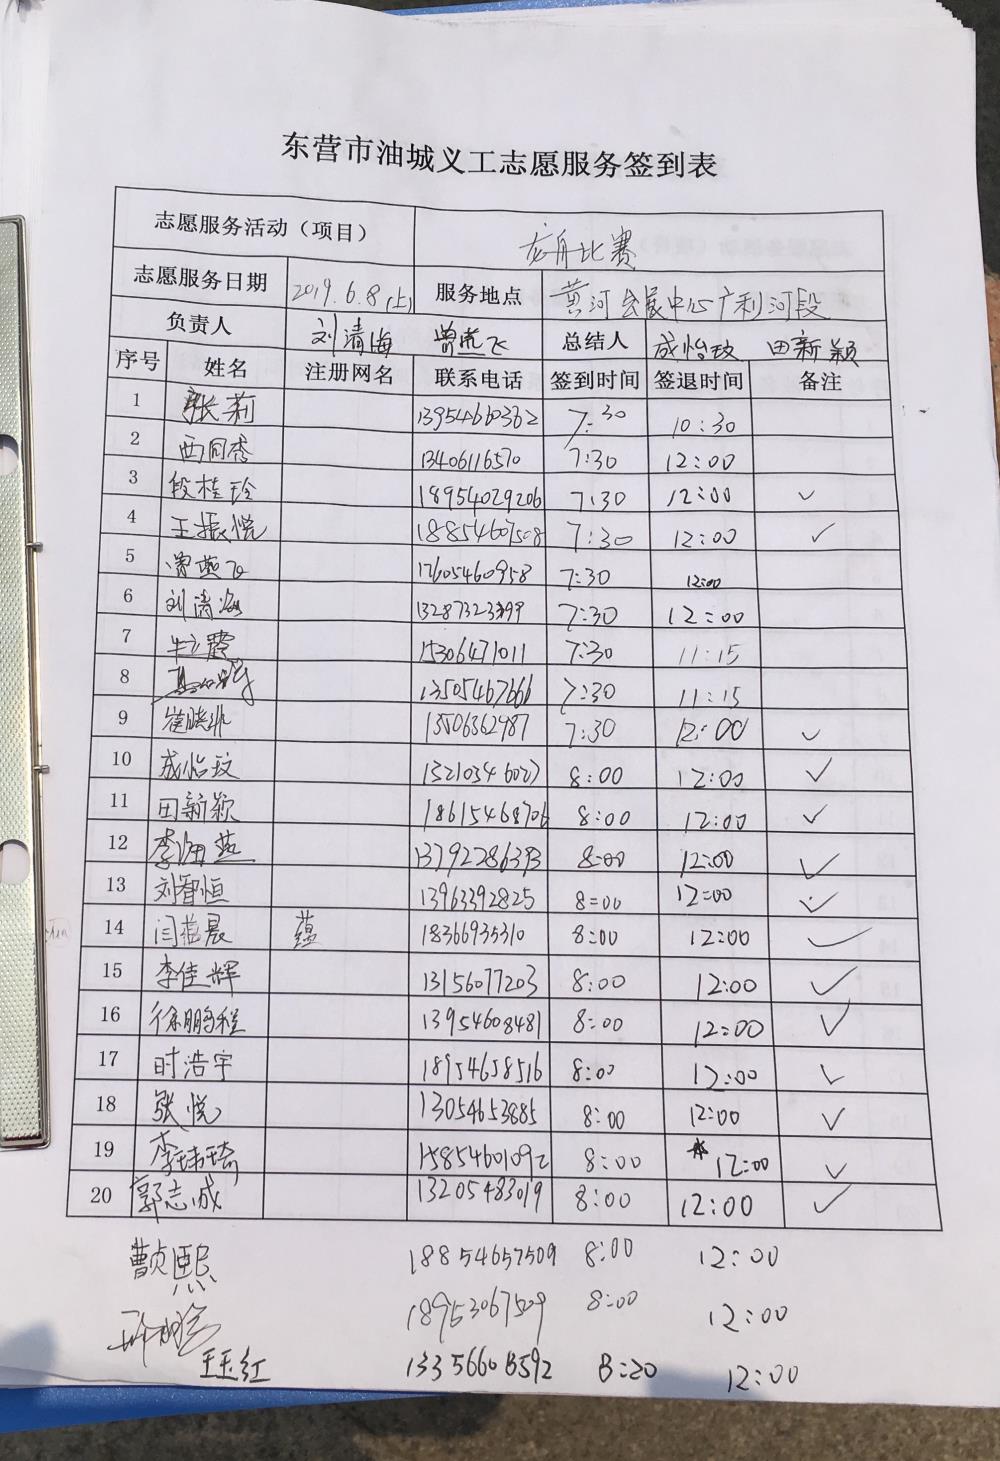 东营市油城义工志愿服务签到表
志愿服务活动（项目） 龙舟比赛
志愿服务日期 2019.6.8(上) 服务地点 黄河会展中心广利河段
负责人 刘清海 曾燕飞 总结人 成怡玟 田新颖
序号 姓名 注册网名 联系电话 签到时间 签退时间 备注
1 张莉 13954660362 7:30 10:30
2 西同秀 13406116570 7:30 12:00
3 段桂玲 18954029206 7:30 12:00 ✓
4 王振悦 18854607508 7:30 12:00 ✓
5 曾燕飞 17605460958 7:30 12:00
6 刘清海 7:30 12:00
7 牛立霞 15306471011 7:30 11:15
8 13505467666 7:30 11:15
9 崔晓兆 13506362987 7:30 12:00 ✓
10 成怡玟 13210346027 8:00 12:00 ✓
11 田新颖 18615468706 8:00 12:00 ✓
12 李海燕 8:00 12:00 ✓
13 刘智恒 13963392825 8:00 12:00 ✓
14 闫蕴晨 蕴 18366935310 8:00 12:00 ✓
15 李佳辉 13156077203 8:00 12:00 ✓
16 徐鹏程 13954608481 8:00 12:00 ✓
17 时浩宇 18954658516 8:00 12:00 ✓
18 张悦 13054653885 8:00 12:00 ✓
19 李玮琦 15854601092 8:00 12:00 ✓
20 郭志成 13205483019 8:00 12:00 ✓
曹贞熙 18854657509 8:00 12:00
18953067509 8:00 12:00
王玉红 13356608592 8:20 12:00